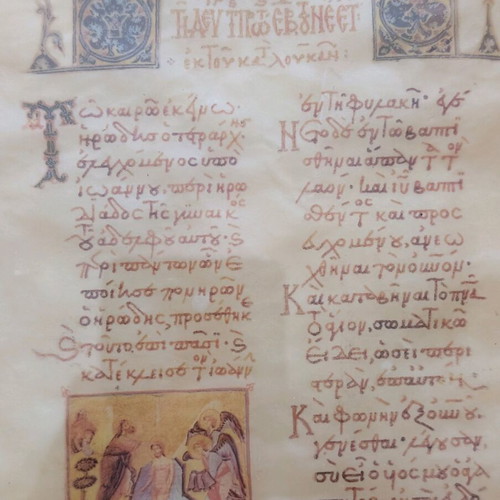 ἐκ τοῦ κατὰ λουκᾶν
Τῷ καιρῷ ἐκείνῳ·
ἡρώδης ὁ τετράρχης
ἐλεγχόμενος ὑπὸ
ἰωάννου, περὶ ἡρω
διάδος τῆς γυναικὸς
τοῦ ἀδελφοῦ αὐτοῦ· ϗ
περὶ πάντων ὧν ἐ
ποίησε πονηρῶν
ὁ ἡρώδης, προσέθηκε
ϗ τοῦτο, ἐπὶ πᾶσι· ϗ
κατέκλεισε τὸν ἰωάνν
ἐν τῇ φυλακῇ· ἐγέ
Νετο δὲ ἐν τῶ βαπτι
σθῆναι ἅπαντα τὸν
λαόν· καὶ ἰῦ βαπτι
σθέντος καὶ προσ
ευχομένου, ἀνεω
χθῆναι τὸν οὐνόν·
Καὶ καταβῆναι τὸ πνᾶ
τὸ ἅγιον, σωματικῶ
εἴδει, ὡσεὶ περι
στεράν, ἐπ' αὐτόν·
Καὶ φωνὴν ἐξ οὐνοῦ,
γενέσθαι λέγουσαν,
σὺ εἶ ὁ υἱός μου ὁ ἀ